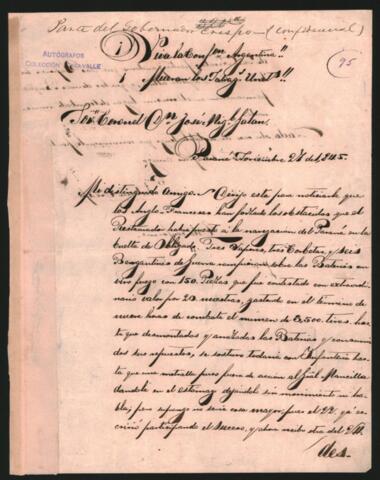 Parte del Gobernador Crespo — (Confidencial)
AUTÓGRAFOS
COLECCIÓN
95
¡Viva la Confon Argentina!!
¡Mueran los Salvags Units!!
Sor Coronel Dn José Migl Galan.
Paraná Noviembre 24 del 845.
Mi distinguido Amigo. Dirijo esta para noticiarle que
los Anglo-Franceses han forzado los obstaculos que el
Restaurador habia puesto á la navegacion del Paraná en la
Vuelta de Obligado. Tres Vapores, tres Corbetas y seis
Bergantines de Guerra rompieron sobre las Baterias un
vivo fuego con 150 Piezas que fué contestado con extraordi-
nario valor por 20 nuestras, gastando en el termino de
nueve horas de combate el numero de 3,500 tiros, has-
ta que desmontadas y arrazadas las Baterias y consumi-
dos sus repuestos, se sostuvo todavia con Infanteria has-
ta que una metralla puso fuera de accion al Gral Mancilla
dandole en el estomago dejandole sin movimiento ni ha-
bla, pero supongo no seria cosa mayor, pues el 22 ya es-
cribió participando el suceso, y ahora recibo otra del
des-